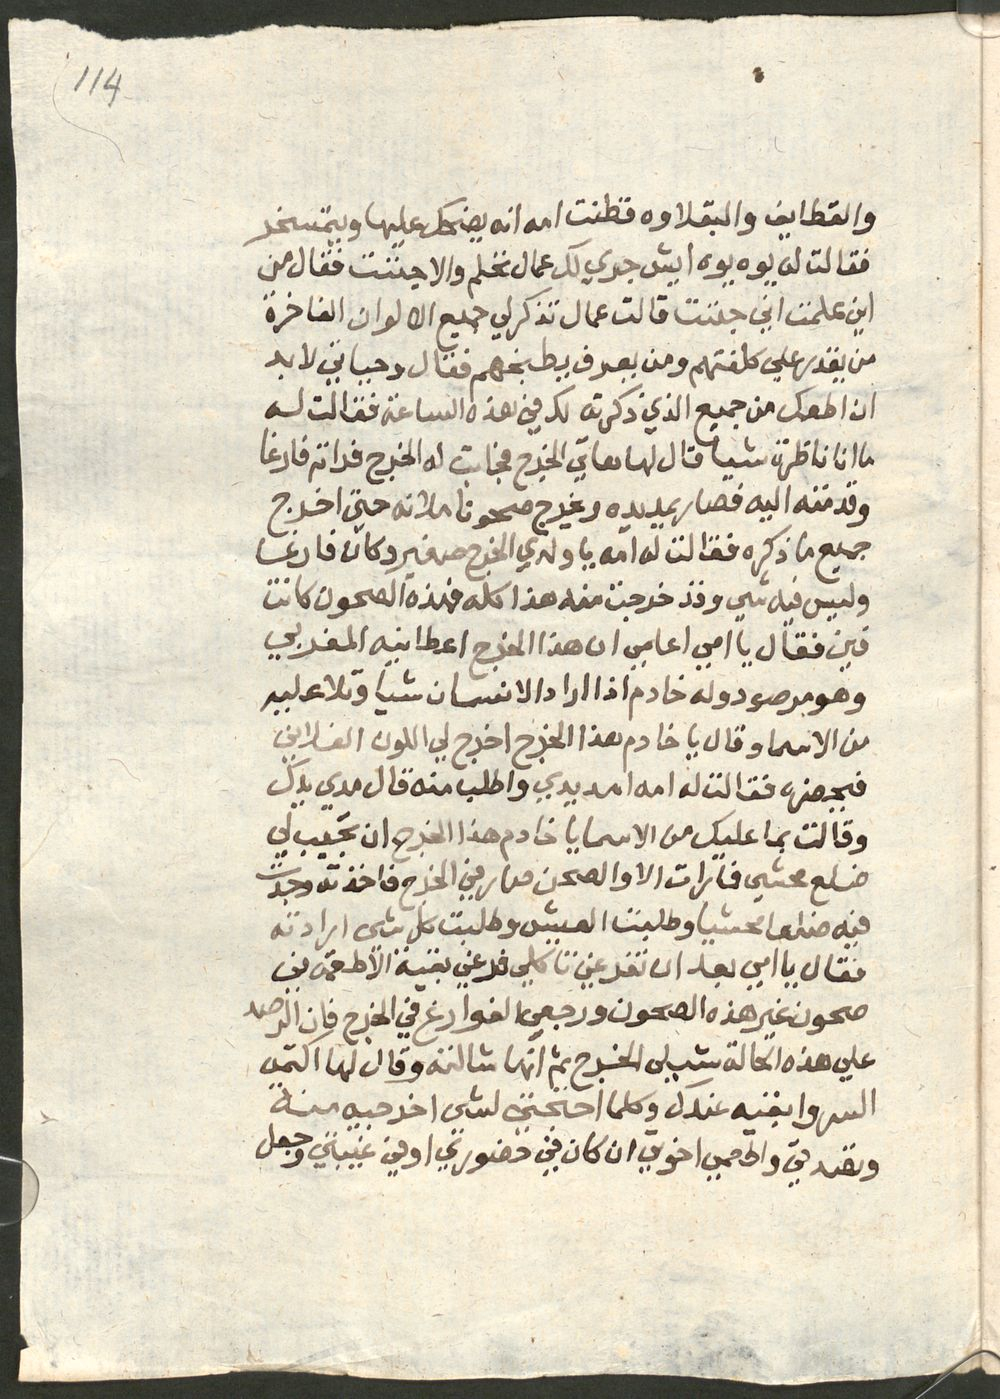 114
والقطايف والبقلاوه فظنت امه انه يضحك عليها ويتمسخر
فقالت له يوه يوه ايش جري لك عمال تحلم والا جننت فقال من
اين علمت اني جننت قالت عمال تذكر لي جميع الالوان الفاخرة
من يقدر علي كلفتهم ومن يعرف يطبخهم فقال وحياتي لا بد
ان اطعمك من جميع الذي ذكرته لك في هذه الساعة فقالت له
ما انا ناظرة شيا قال لها هاتي الخرج فجابت له الخرج فراته فارغا
وقدمته اليه فصار يمد يده ويخرج صحونا ملانه حتي اخرج
جميع ما ذكره فقالت له امه يا ولدي الخرج صغير وكان فارغا
وليس فيه شي وقد خرجت منه هذا كله فهذه الصحون كانت
فين فقال يا امي اعلمي ان هذا الخرج اعطانيه المغربي
وهو مرصود وله خادم اذا اراد الانسان شيا وتلا عليه
من الاسما وقال يا خادم هذا الخرج اخرج لي اللون الفلاني
فيحضره فقالت له امه امد يدي واطلب منه قال مدي يدك
وقالت بما عليك من الاسما يا خادم هذا الخرج ان تجيب لي
ضلع محشي فما رات الا والصحن صار في الخرج فاخذته وجدت
فيه ضلعا محشيا وطلبت العيش وطلبت كل شي ارادته
فقال يا امي بعد ان تفرغي تاكلي فرغي بقية الاطعمة في
صحون غير هذه الصحون ورجعي الفوارغ في الخرج فان الرصد
علي هذه الحالة شيلي الخرج ثم انها شالته وقال لها اكتمي
السر وابقيه عندك وكلما احتجتي لشي اخرجيه منه
وتصدقي واطعمي اخوتي ان كان في حضورتي او في غيبتي وجعل